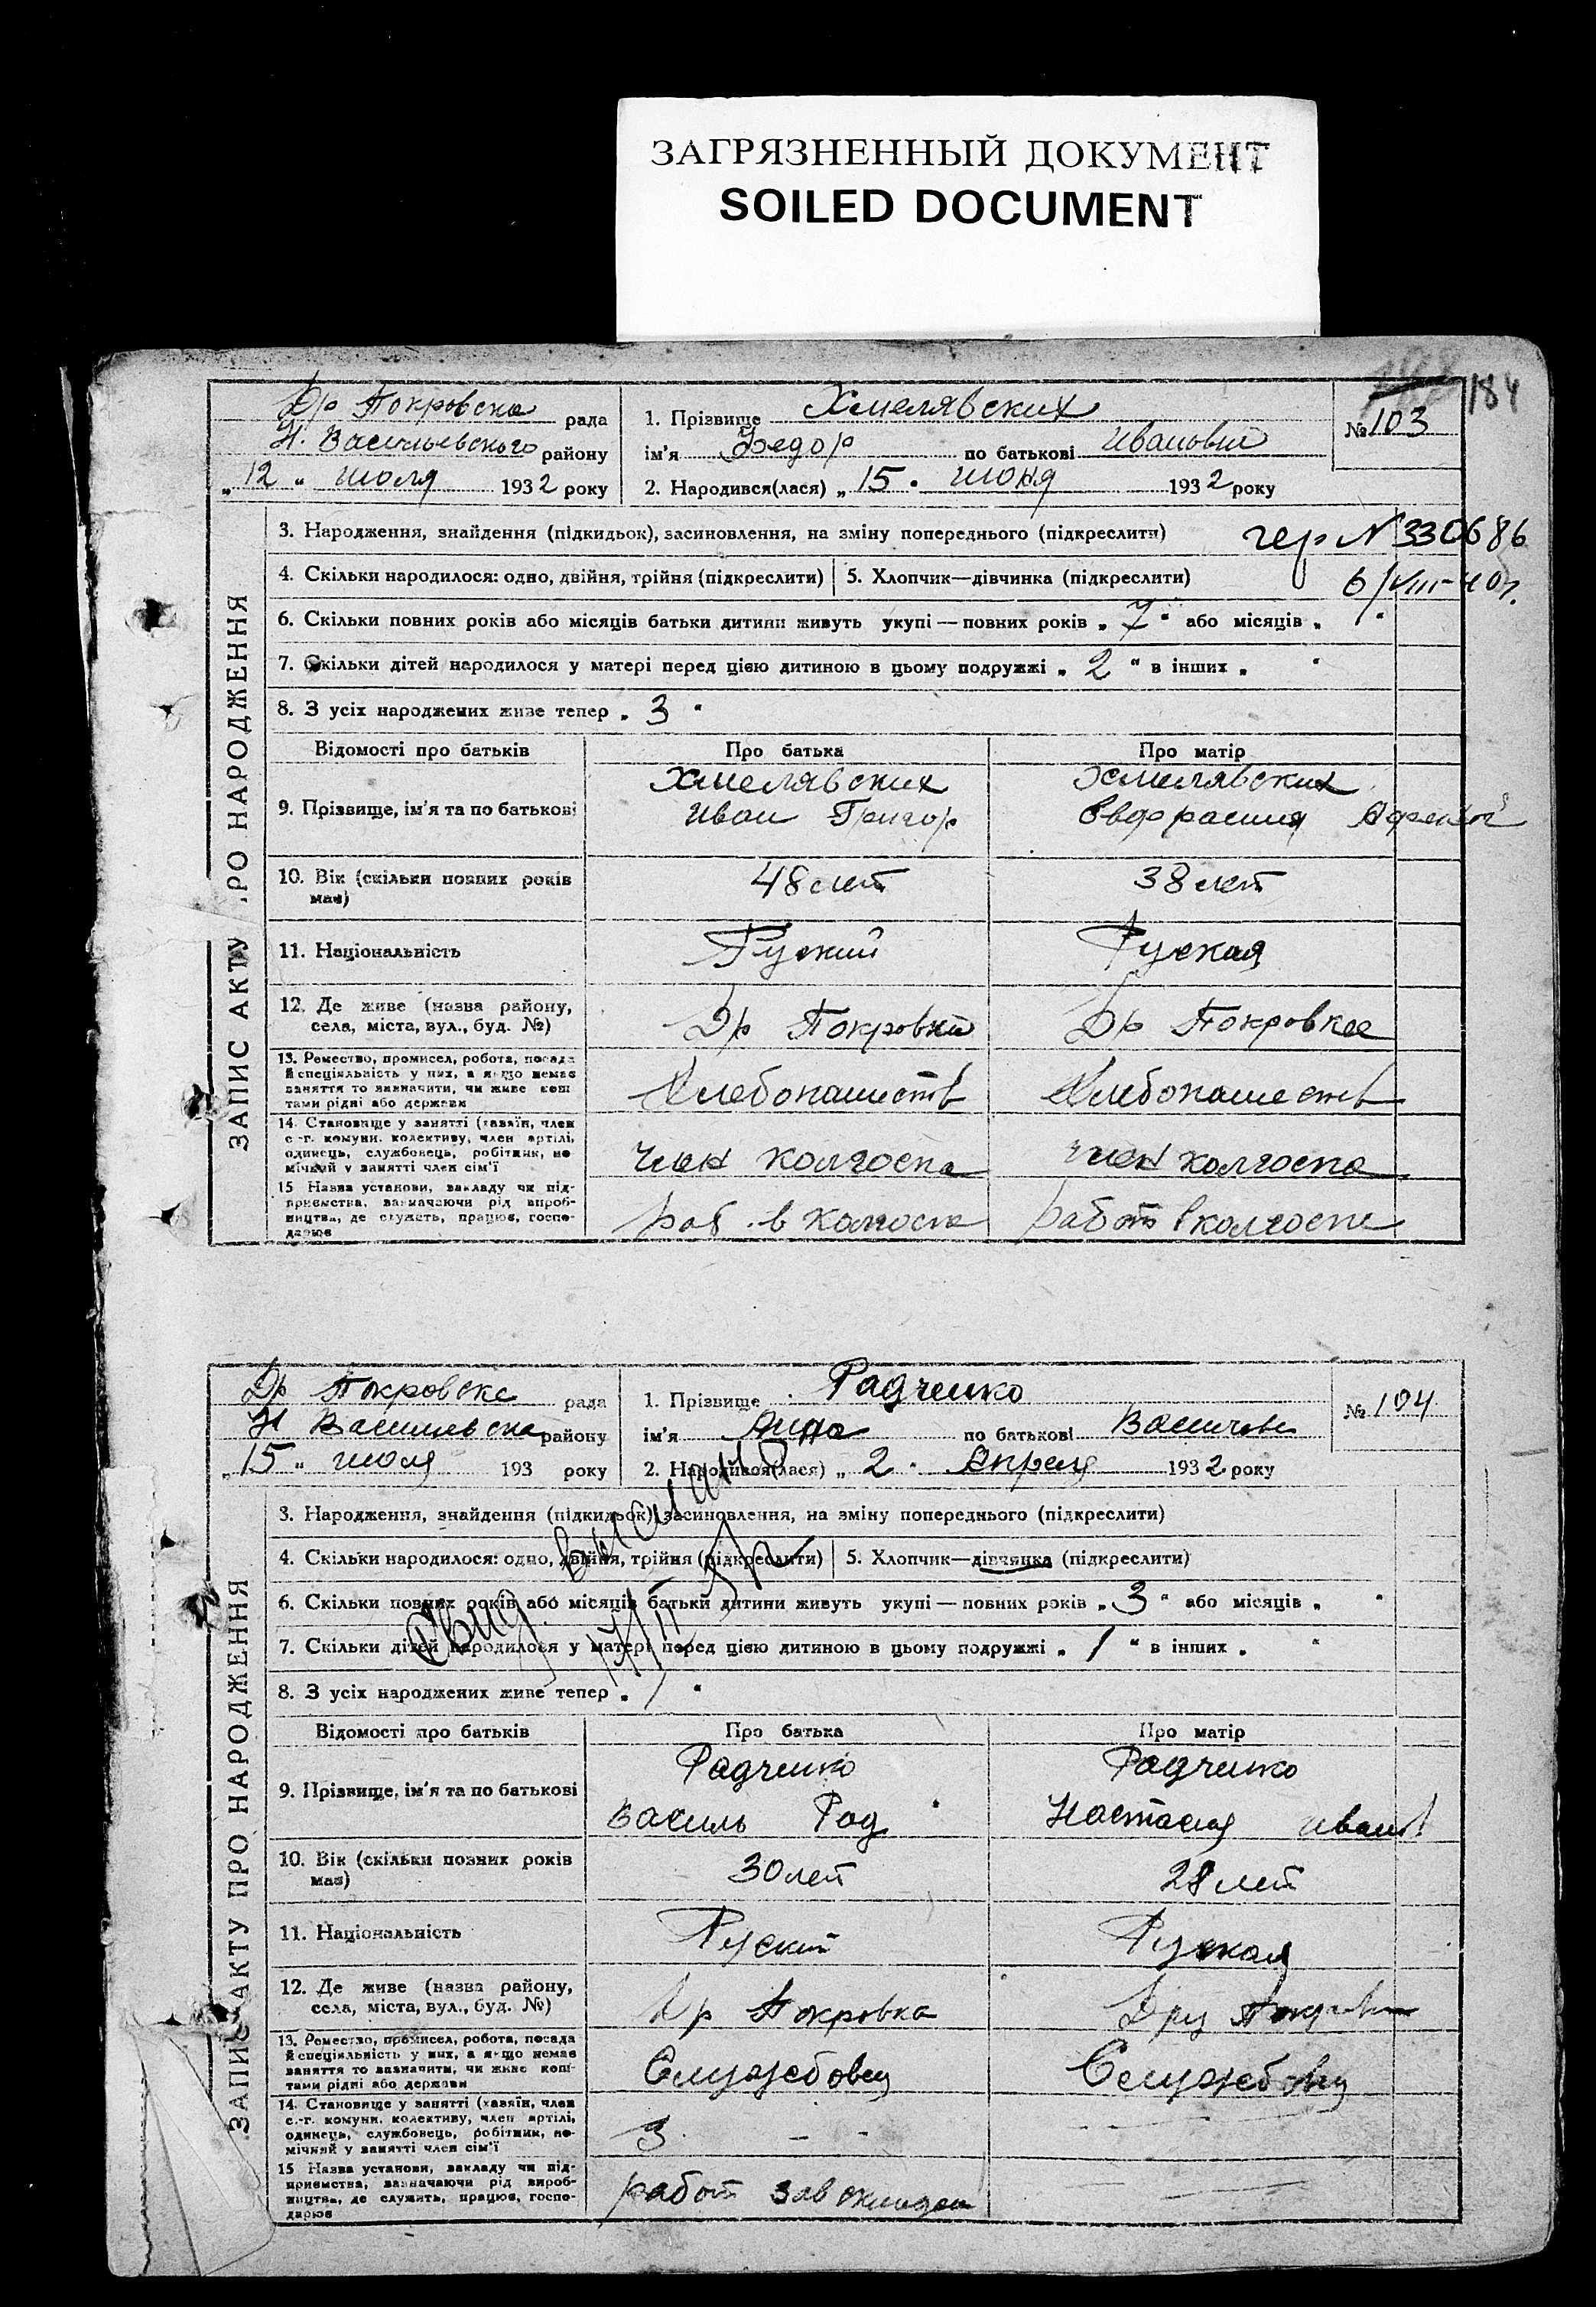 ЗАГРЯЗНЕННЫЙ ДОКУМЕНТ
SOILED DOCUMENT
184
Др Покровска рада
Н. Васильевского району
„12" июля 1932 року
1. Прізвище Хмелявских
ім'я Федор по батькові Иванови
2. Народився(лася) „15" июня 1932 року
№ 103
ЗАПИС АКТУ ПРО НАРОДЖЕННЯ
3. Народження, знайдення (підкидьок), засиновлення, на зміну попереднього (підкреслити)
N 330686
4. Скільки народилося: одно, двійня, трійня (підкреслити) 5. Хлопчик—дівчинка (підкреслити)
6/VIII-40г.
6. Скільки повних років або місяців батьки дитини живуть укупі — повних років „7" або місяців „ "
7. Скільки дітей народилося у матері перед цією дитиною в цьому подружжі „2" в інших „ "
8. З усіх народжених живе тепер „3"
Відомості про батьків Про батька Про матір
9. Прізвище, ім'я та по батькові
Хмелявских Хмелявских
Иван Григор Евфросиния
10. Вік (скільки повних років має) 48 лет 38 лет
11. Національність Руский Руская
12. Де живе (назва району, села, міста, вул., буд. №) Др Покровка Др Покровка
13. Ремество, промисел, робота, посада й спеціяльність у них, а якщо немає заняття то визначити, чи живе коштами рідні або держави
Хлебопашеств Хлебопашеств
14. Становище у занятті (хазяїн, член с.-г. комуни, колективу, член артілі, одинець, службовець, робітник, помічний у занятті член сім'ї
член колгоспа член колгоспа
15 Назва установи, закладу чи підприємства, зазначаючи рід виробництва, де служить, працює, господарює
раб. в колгоспе работ в колгоспе
Др Покровске рада
Н Васильевска району
„15" июля 193 року
1. Прізвище Радченко
ім'я Анна по батькові Василев
2. Народився(лася) „2" Апреля 1932 року
№ 104
ЗАПИС АКТУ ПРО НАРОДЖЕННЯ
3. Народження, знайдення (підкидьок), засиновлення, на зміну попереднього (підкреслити)
4. Скільки народилося: одно, двійня, трійня (підкреслити) 5. Хлопчик—дівчинка (підкреслити)
6. Скільки повних років або місяців батьки дитини живуть укупі — повних років „3" або місяців „ "
7. Скільки дітей народилося у матері перед цією дитиною в цьому подружжі „1" в інших „ "
Свид. выслано
8. З усіх народжених живе тепер „ "
Відомості про батьків Про батька Про матір
9. Прізвище, ім'я та по батькові
Радченко Радченко
Василь Рад Настасия Иван
10. Вік (скільки повних років має) 30 лет 28 лет
11. Національність Руский Руская
12. Де живе (назва району, села, міста, вул., буд. №) Др Покровка Дру Покровк
13. Ремество, промисел, робота, посада й спеціяльність у них, а якщо немає заняття то визначити, чи живе коштами рідні або держави
Служебовец Служебовец
14. Становище у занятті (хазяїн, член с.-г. комуни, колективу, член артілі, одинець, службовець, робітник, помічний у занятті член сім'ї
З - -
15 Назва установи, закладу чи підприємства, зазначаючи рід виробництва, де служить, працює, господарює
работ зав складом